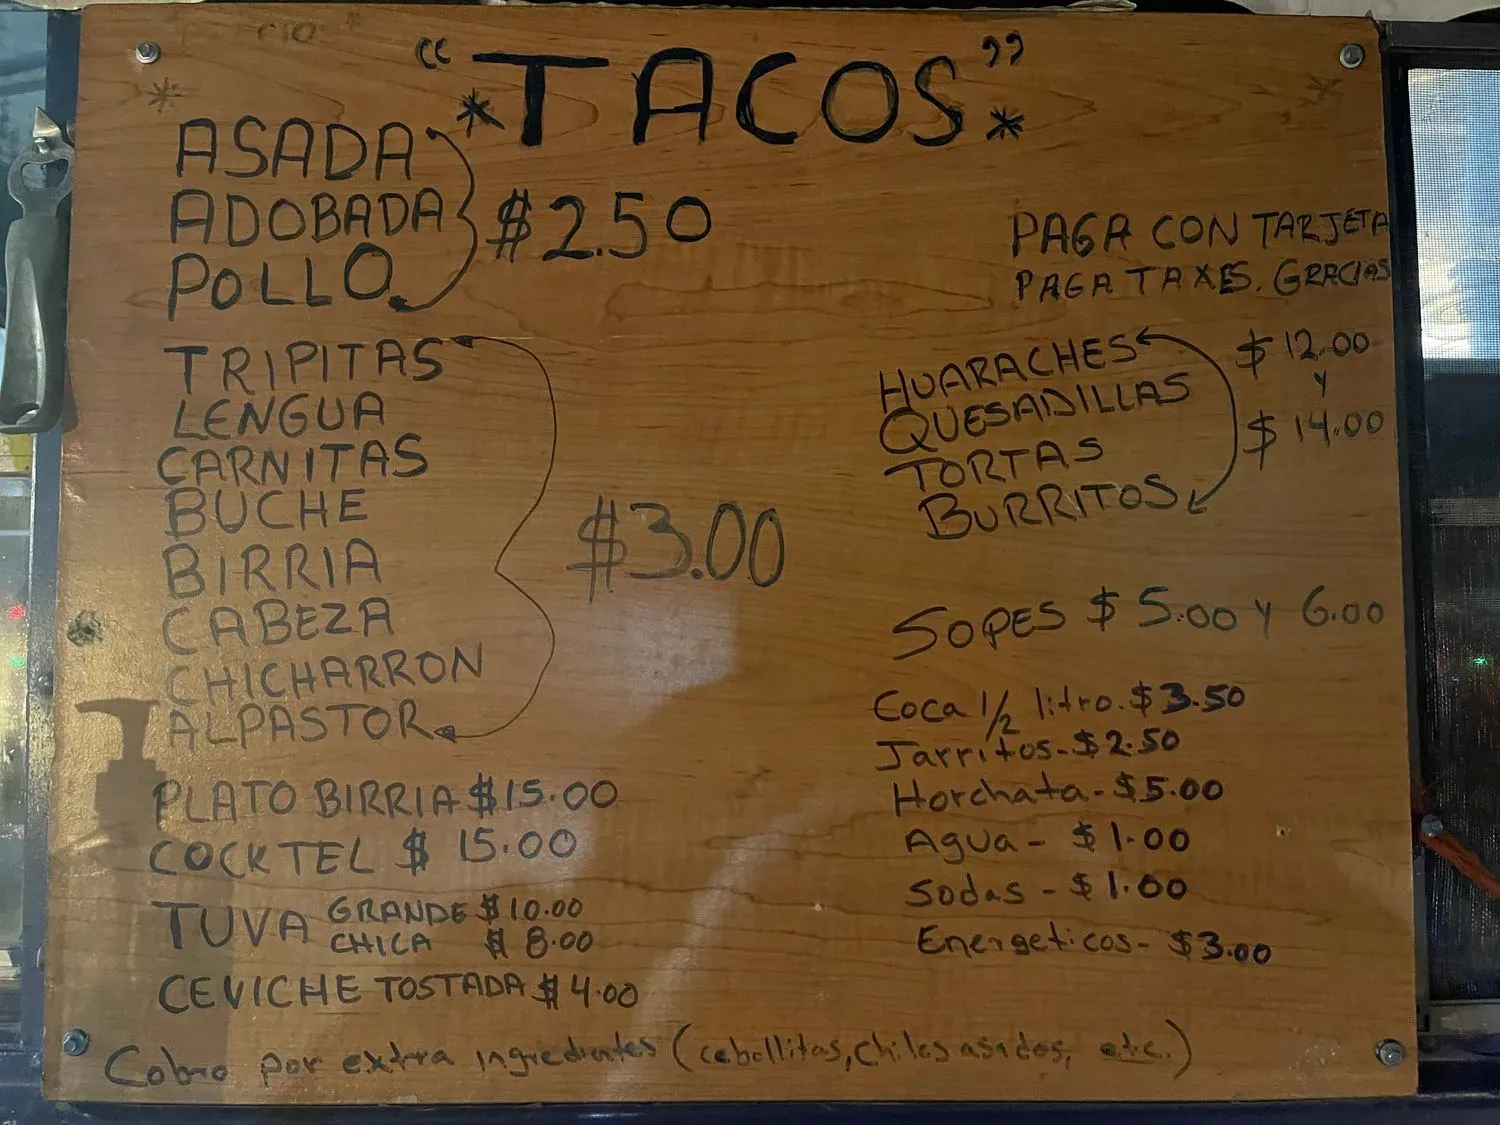 "TACOS"
ASADA
ADOBADA
POLLO
$2.50
TRIPITAS
LENGUA
CARNITAS
BUCHE
BIRRIA
CABEZA
CHICHARRON
ALPASTOR
$3.00
PLATO BIRRIA $15.00
COCKTEL $ 15.00
TUVA GRANDE $10.00
CHICA $ 8.00
CEVICHE TOSTADA $4.00
PAGA CON TARJETA
PAGA TAXES. GRACIAS
HUARACHES
QUESADILLAS
TORTAS
BURRITOS
$12.00
y
$14.00
SOPES $5.00 y 6.00
Coca 1/2 litro.$3.50
Jarritos-$2.50
Horchata-$5.00
Agua- $1.00
Sodas - $1.00
Energeticos- $3.00
Cobro por extra ingredientes (cebollitas, chiles asados, etc.)